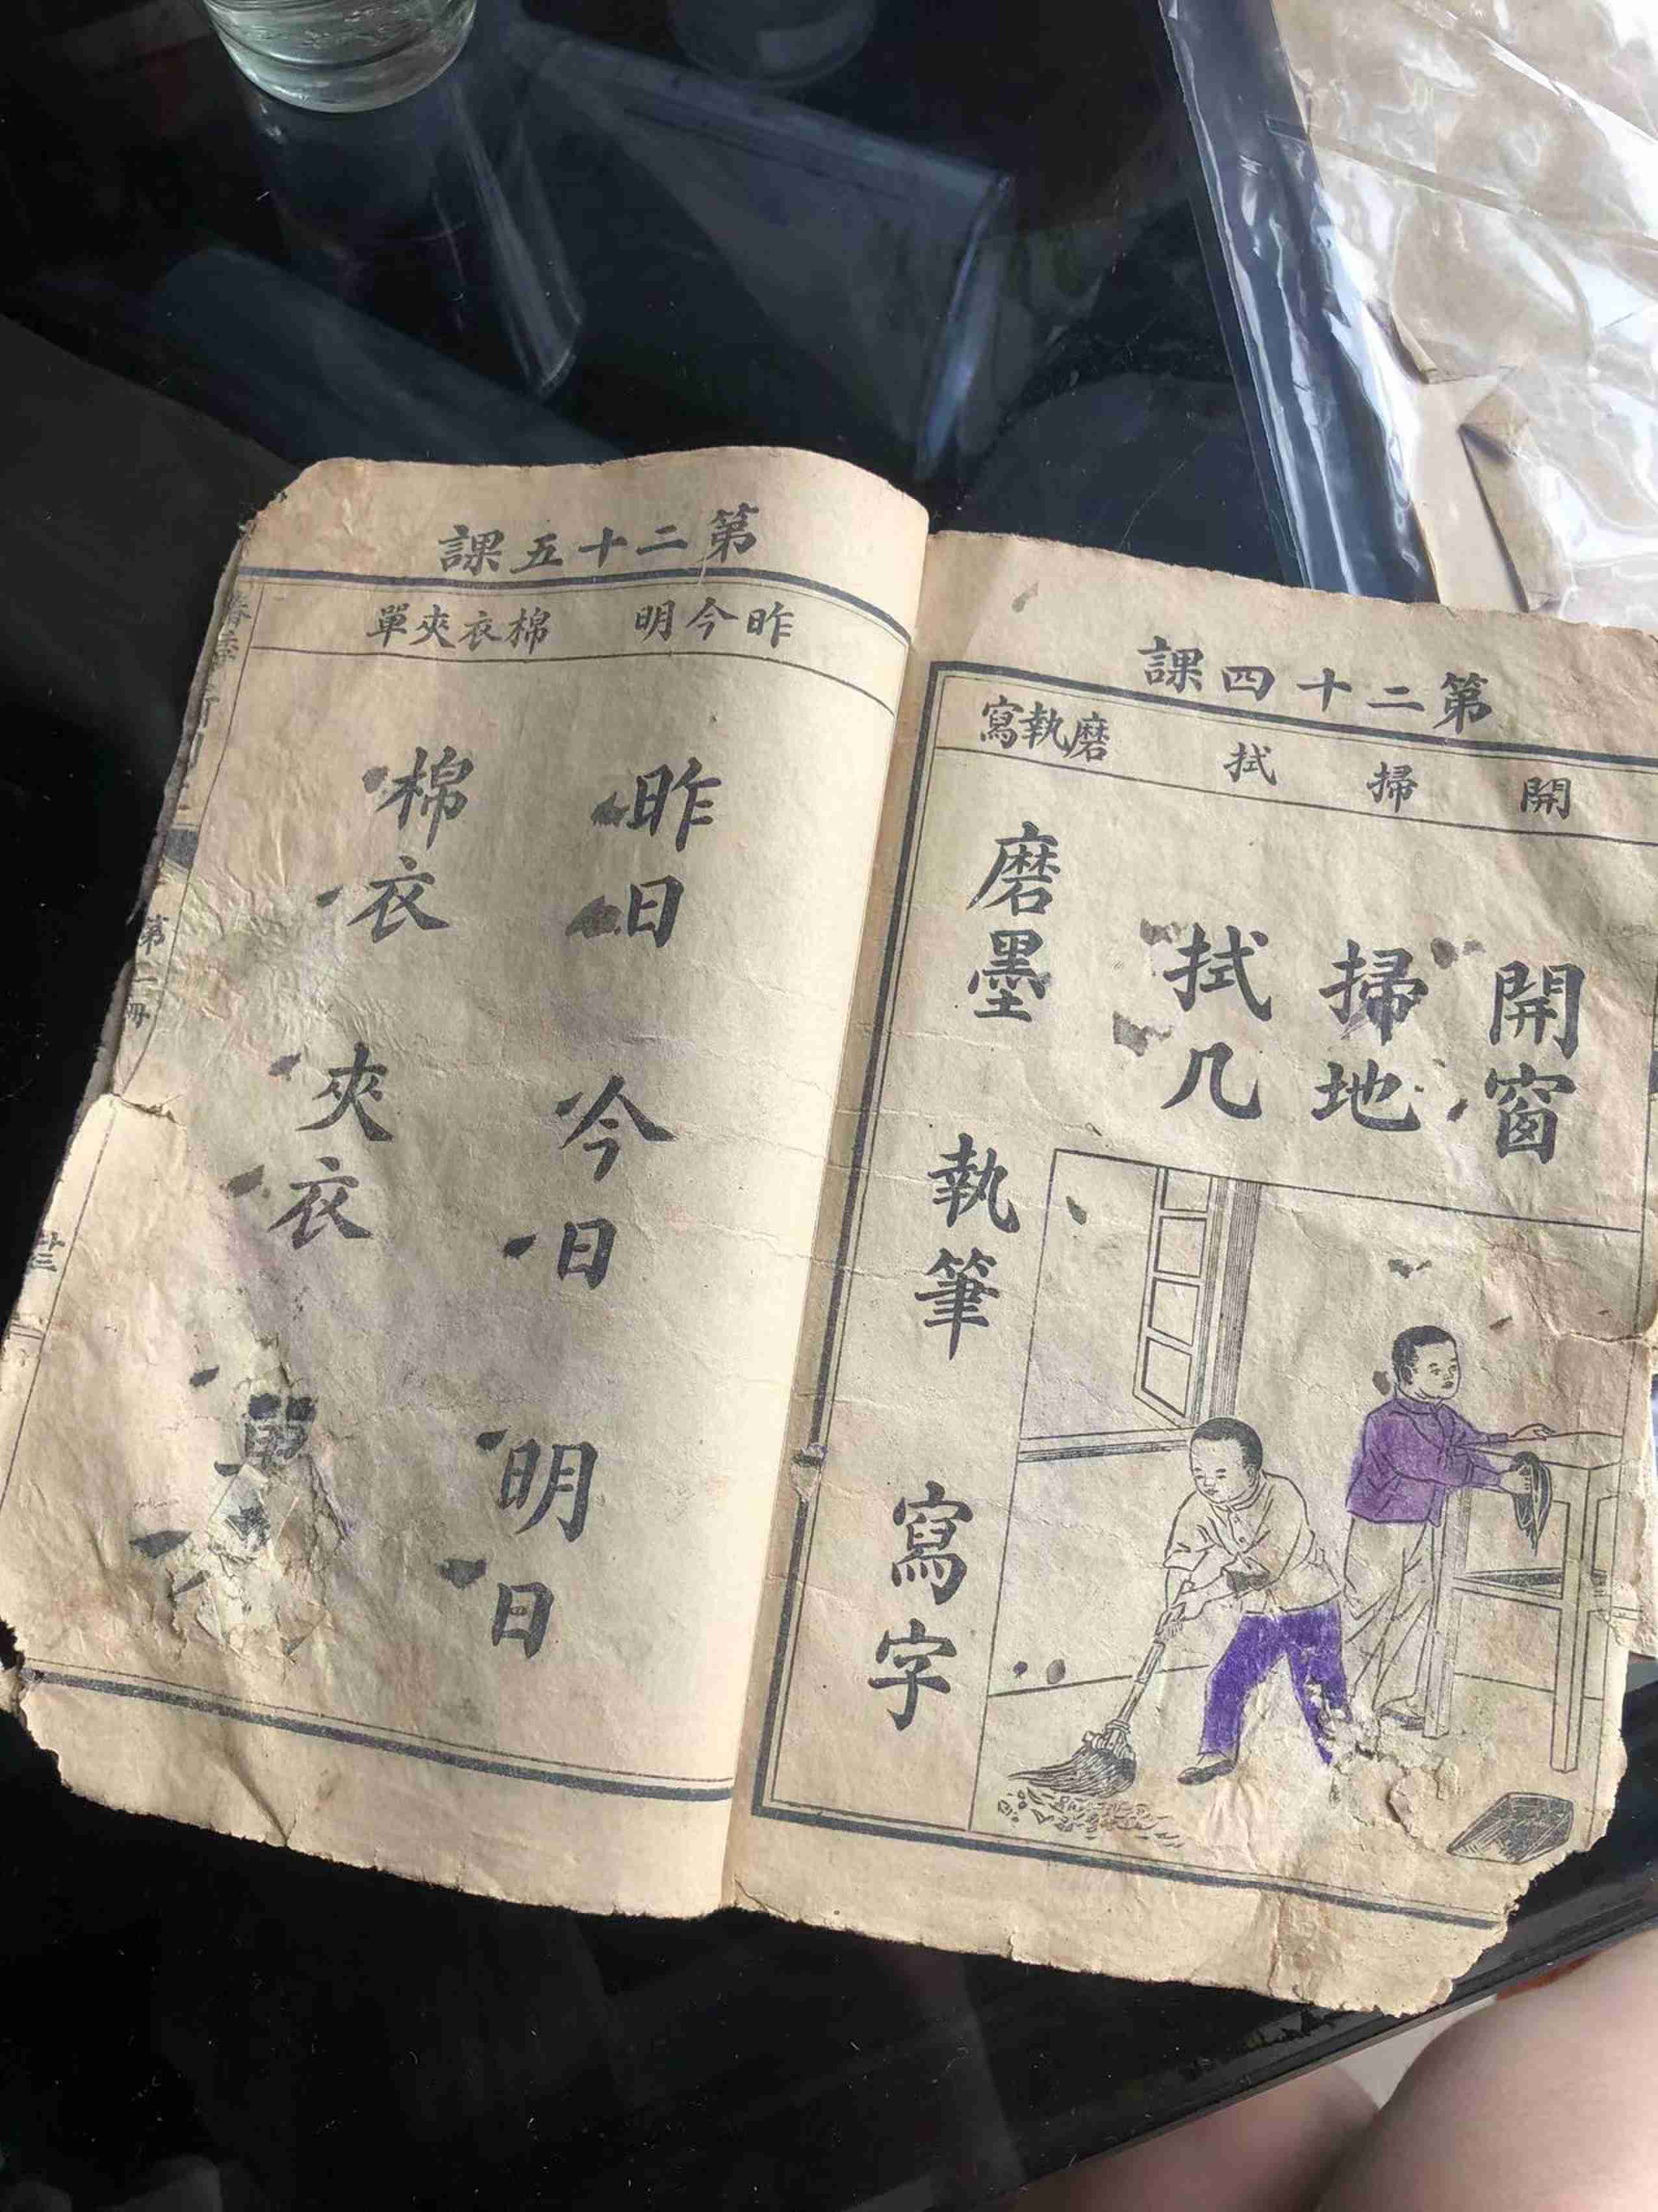 第二十四課
開 掃 拭 磨執寫
開窗
掃地
拭几
磨墨 執筆 寫字
第二十五課
昨今明 棉衣夾單
昨日 今日 明日
棉衣 夾衣 單
春季
第二冊
廿三